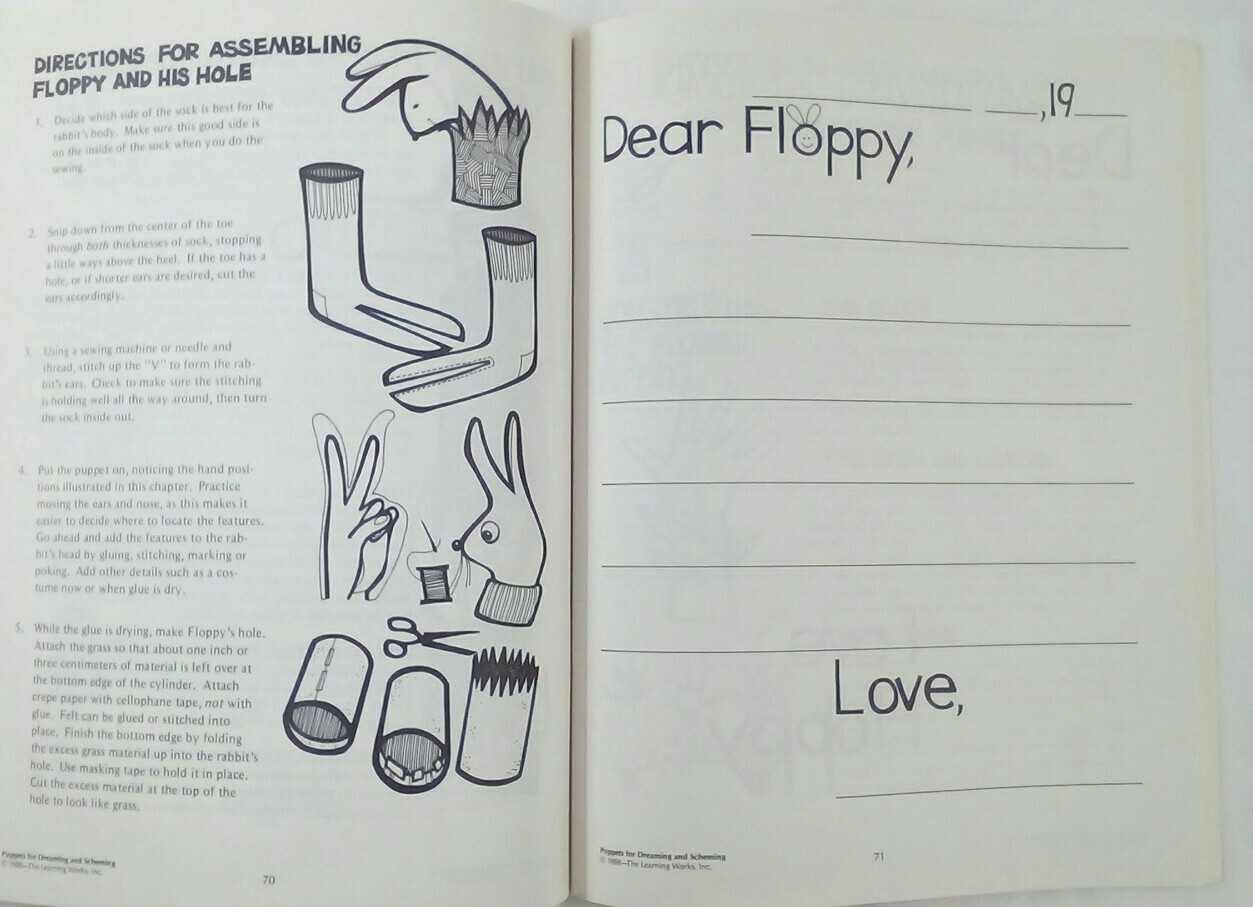 DIRECTIONS FOR ASSEMBLING
FLOPPY AND HIS HOLE
1. Decide which side of the sock is best for the
rabbit's body. Make sure this good side is
on the inside of the sock when you do the
sewing.
2. Snip down from the center of the toe
through both thicknesses of sock, stopping
a little ways above the heel. If the toe has a
hole, or if shorter ears are desired, cut the
ears accordingly.
3. Using a sewing machine or needle and
thread, stitch up the "V" to form the rab-
bit's ears. Check to make sure the stitching
is holding well all the way around, then turn
the sock inside out.
4. Put the puppet on, noticing the hand posi-
tions illustrated in this chapter. Practice
moving the ears and nose, as this makes it
easier to decide where to locate the features.
Go ahead and add the features to the rab-
bit's head by gluing, stitching, marking or
poking. Add other details such as a cos-
tume now or when glue is dry.
5. While the glue is drying, make Floppy's hole.
Attach the grass so that about one inch or
three centimeters of material is left over at
the bottom edge of the cylinder. Attach
crepe paper with cellophane tape, not with
glue. Felt can be glued or stitched into
place. Finish the bottom edge by folding
the excess grass material up into the rabbit's
hole. Use masking tape to hold it in place.
Cut the excess material at the top of the
hole to look like grass.
Puppets for Dreaming and Scheming
© 1988—The Learning Works, Inc.
70
,19
Dear Floppy,
Love,
Puppets for Dreaming and Scheming
© 1988—The Learning Works, Inc.
71